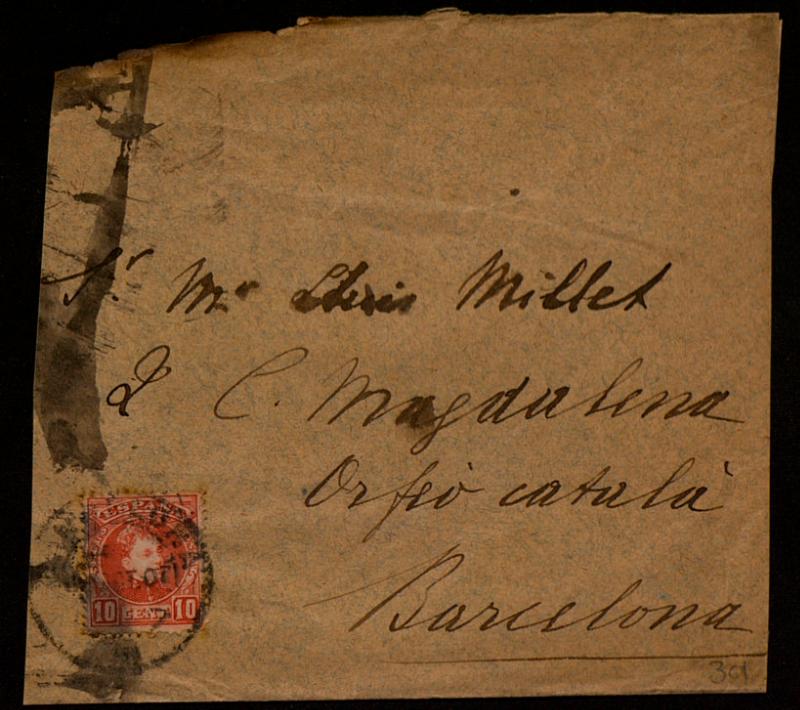 Sr Mr Lluis Millet
C. Magdalena
Orfeò català
Barcelona
ESPAÑA
10 CENT. 10